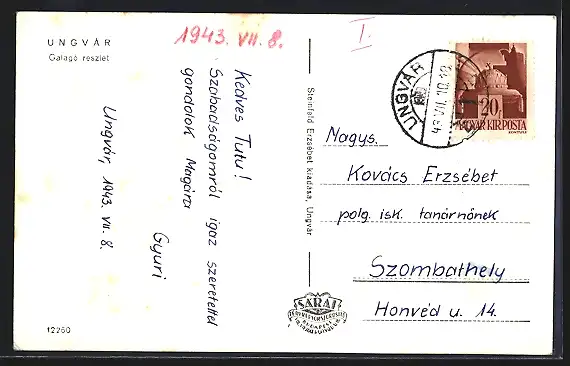 UNGVÁR
Galagó részlet
1943. VII. 8.
Kedves Tutu!
Szabadságomról igaz szeretettel
gondolok Magára
Gyuri
Ungvár, 1943. VII. 8.
12260
Steinfeld Erzsébet kiadása, Ungvár
I.
UNGVÁR
43 VII. 10.
20
MAGYAR KIR. POSTA
Nagys.
Kovács Erzsébet
polg. isk. tanárnőnek
Szombathely
Honvéd u. 14.
BUDAPEST